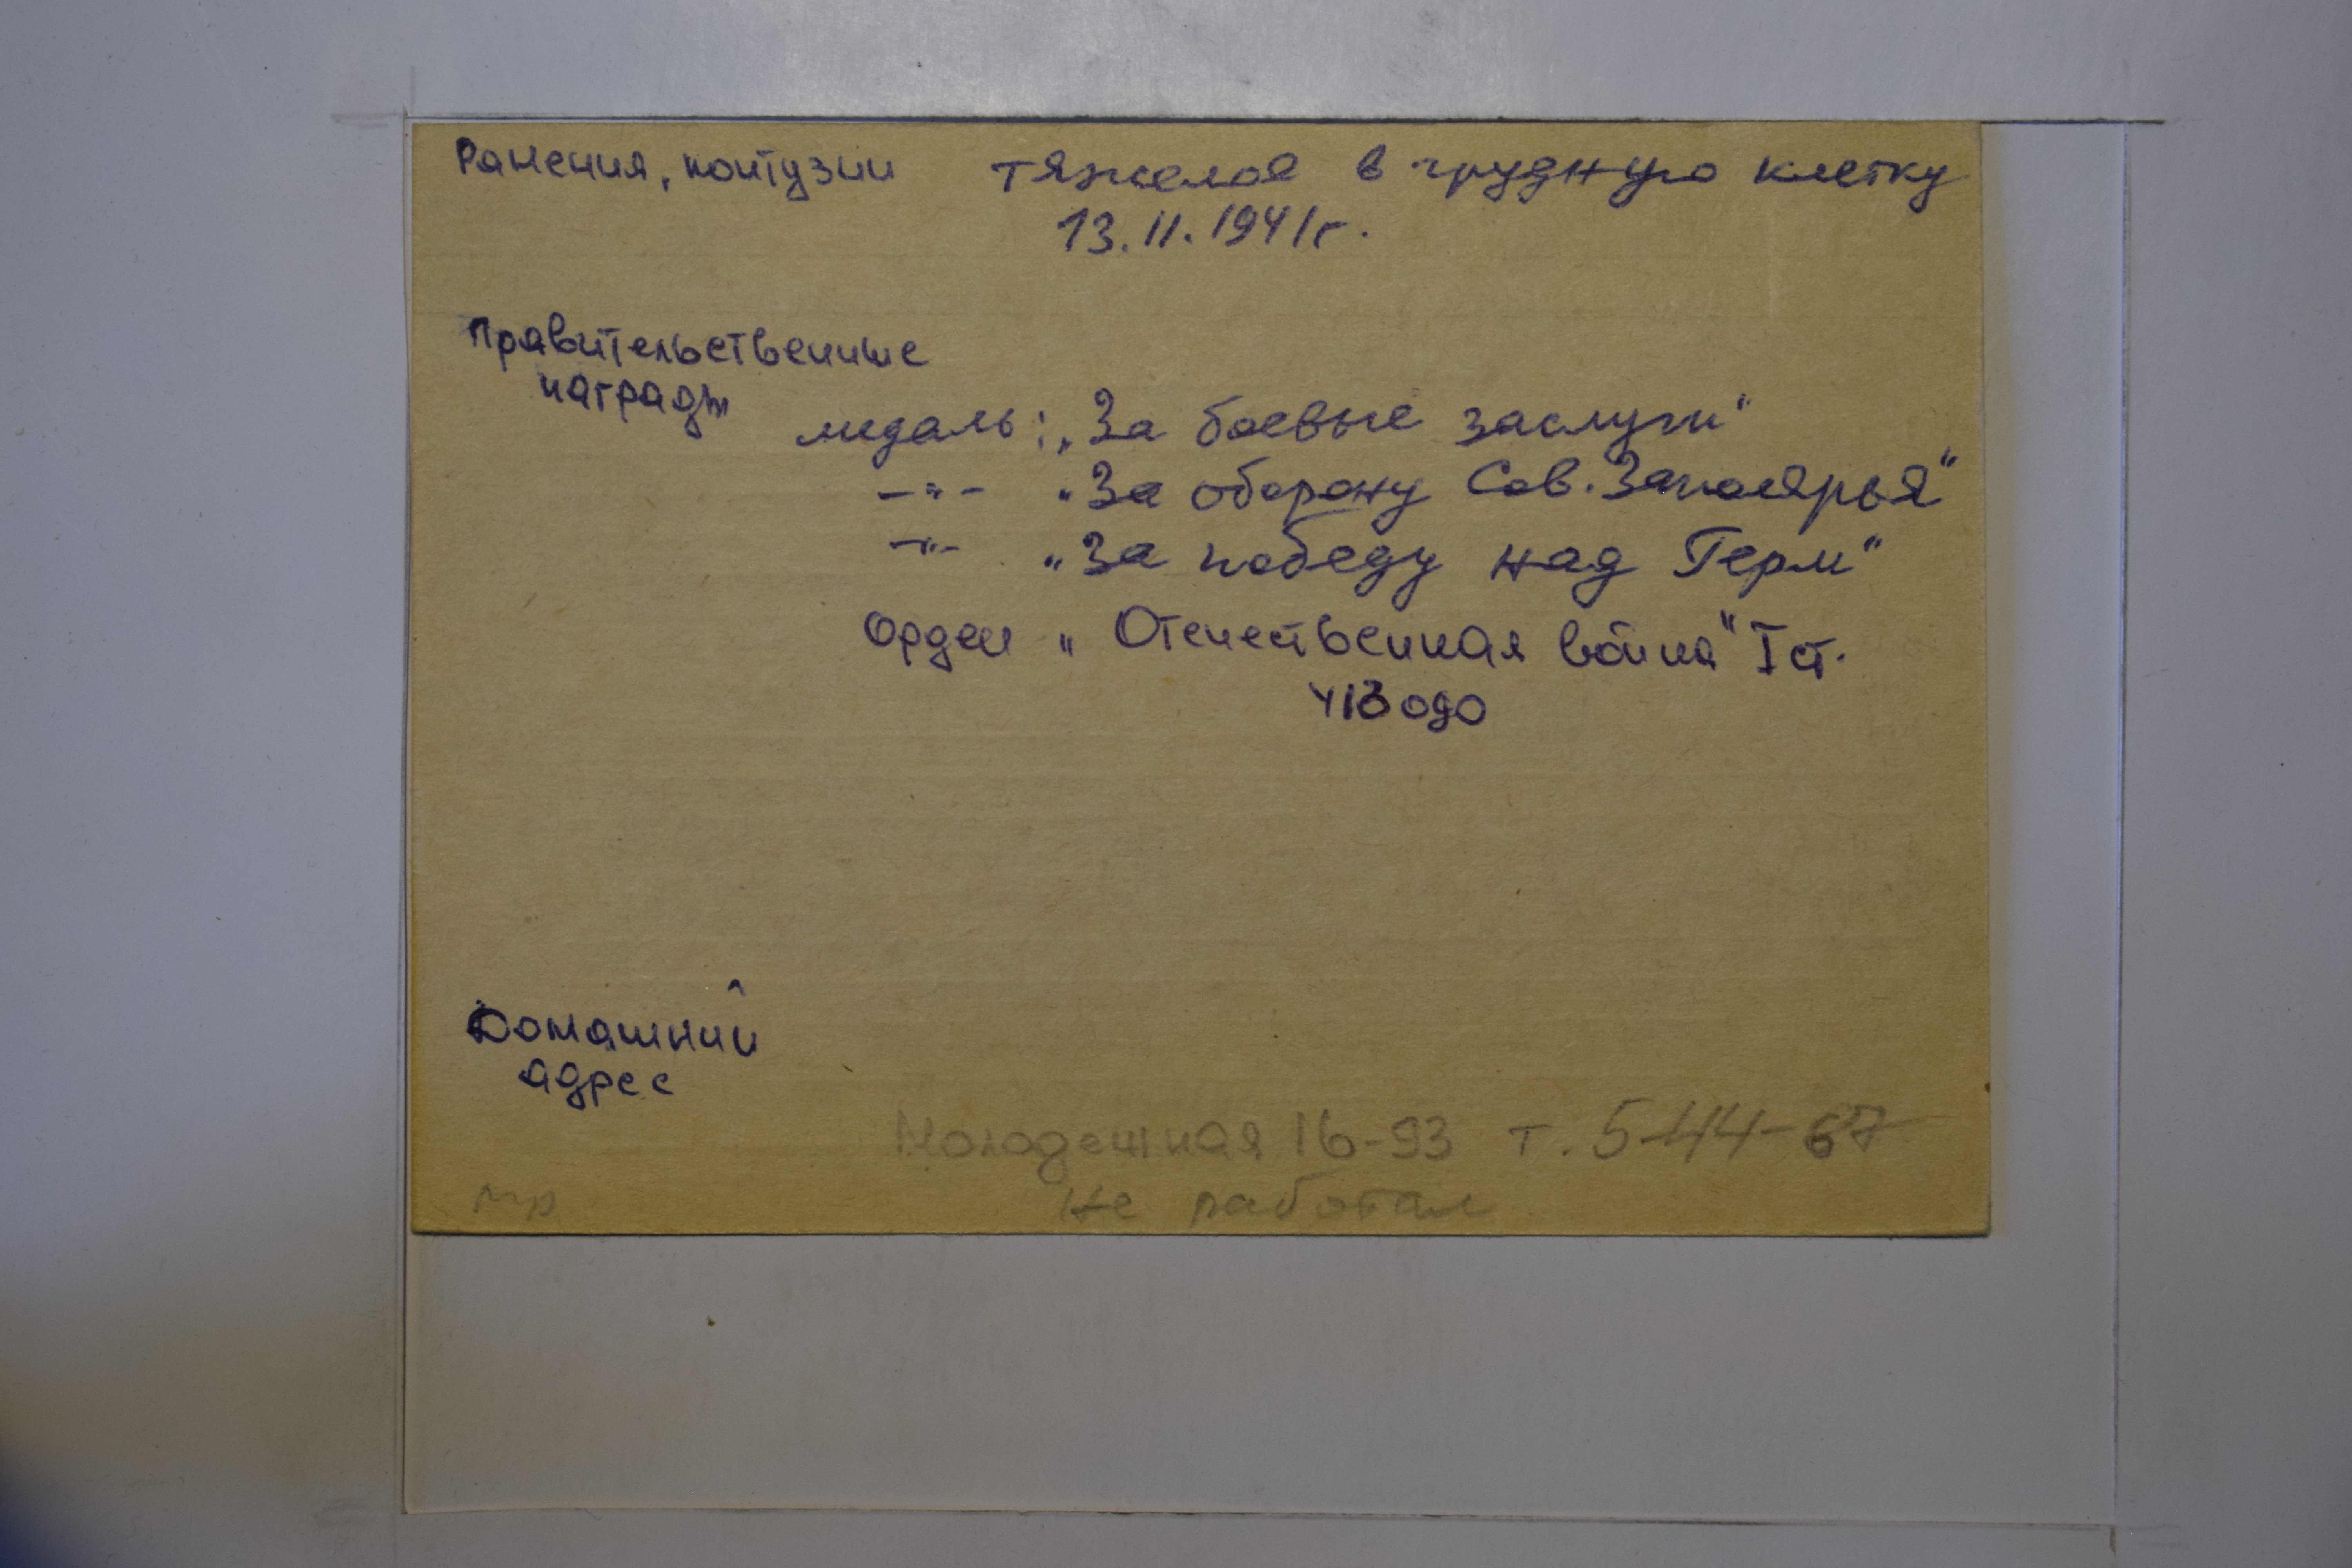 Ранения, контузии тяжелое в грудную клетку
13.11.1941г.
Правительственные
награды
медаль: „За боевые заслуги"
—"— „За оборону Сов. Заполярья"
—"— „За победу над Герм"
Орден „Отечественная война" I ст.
Домашний
адрес
Молодежная 16-93 т. 5-44-67
не работал